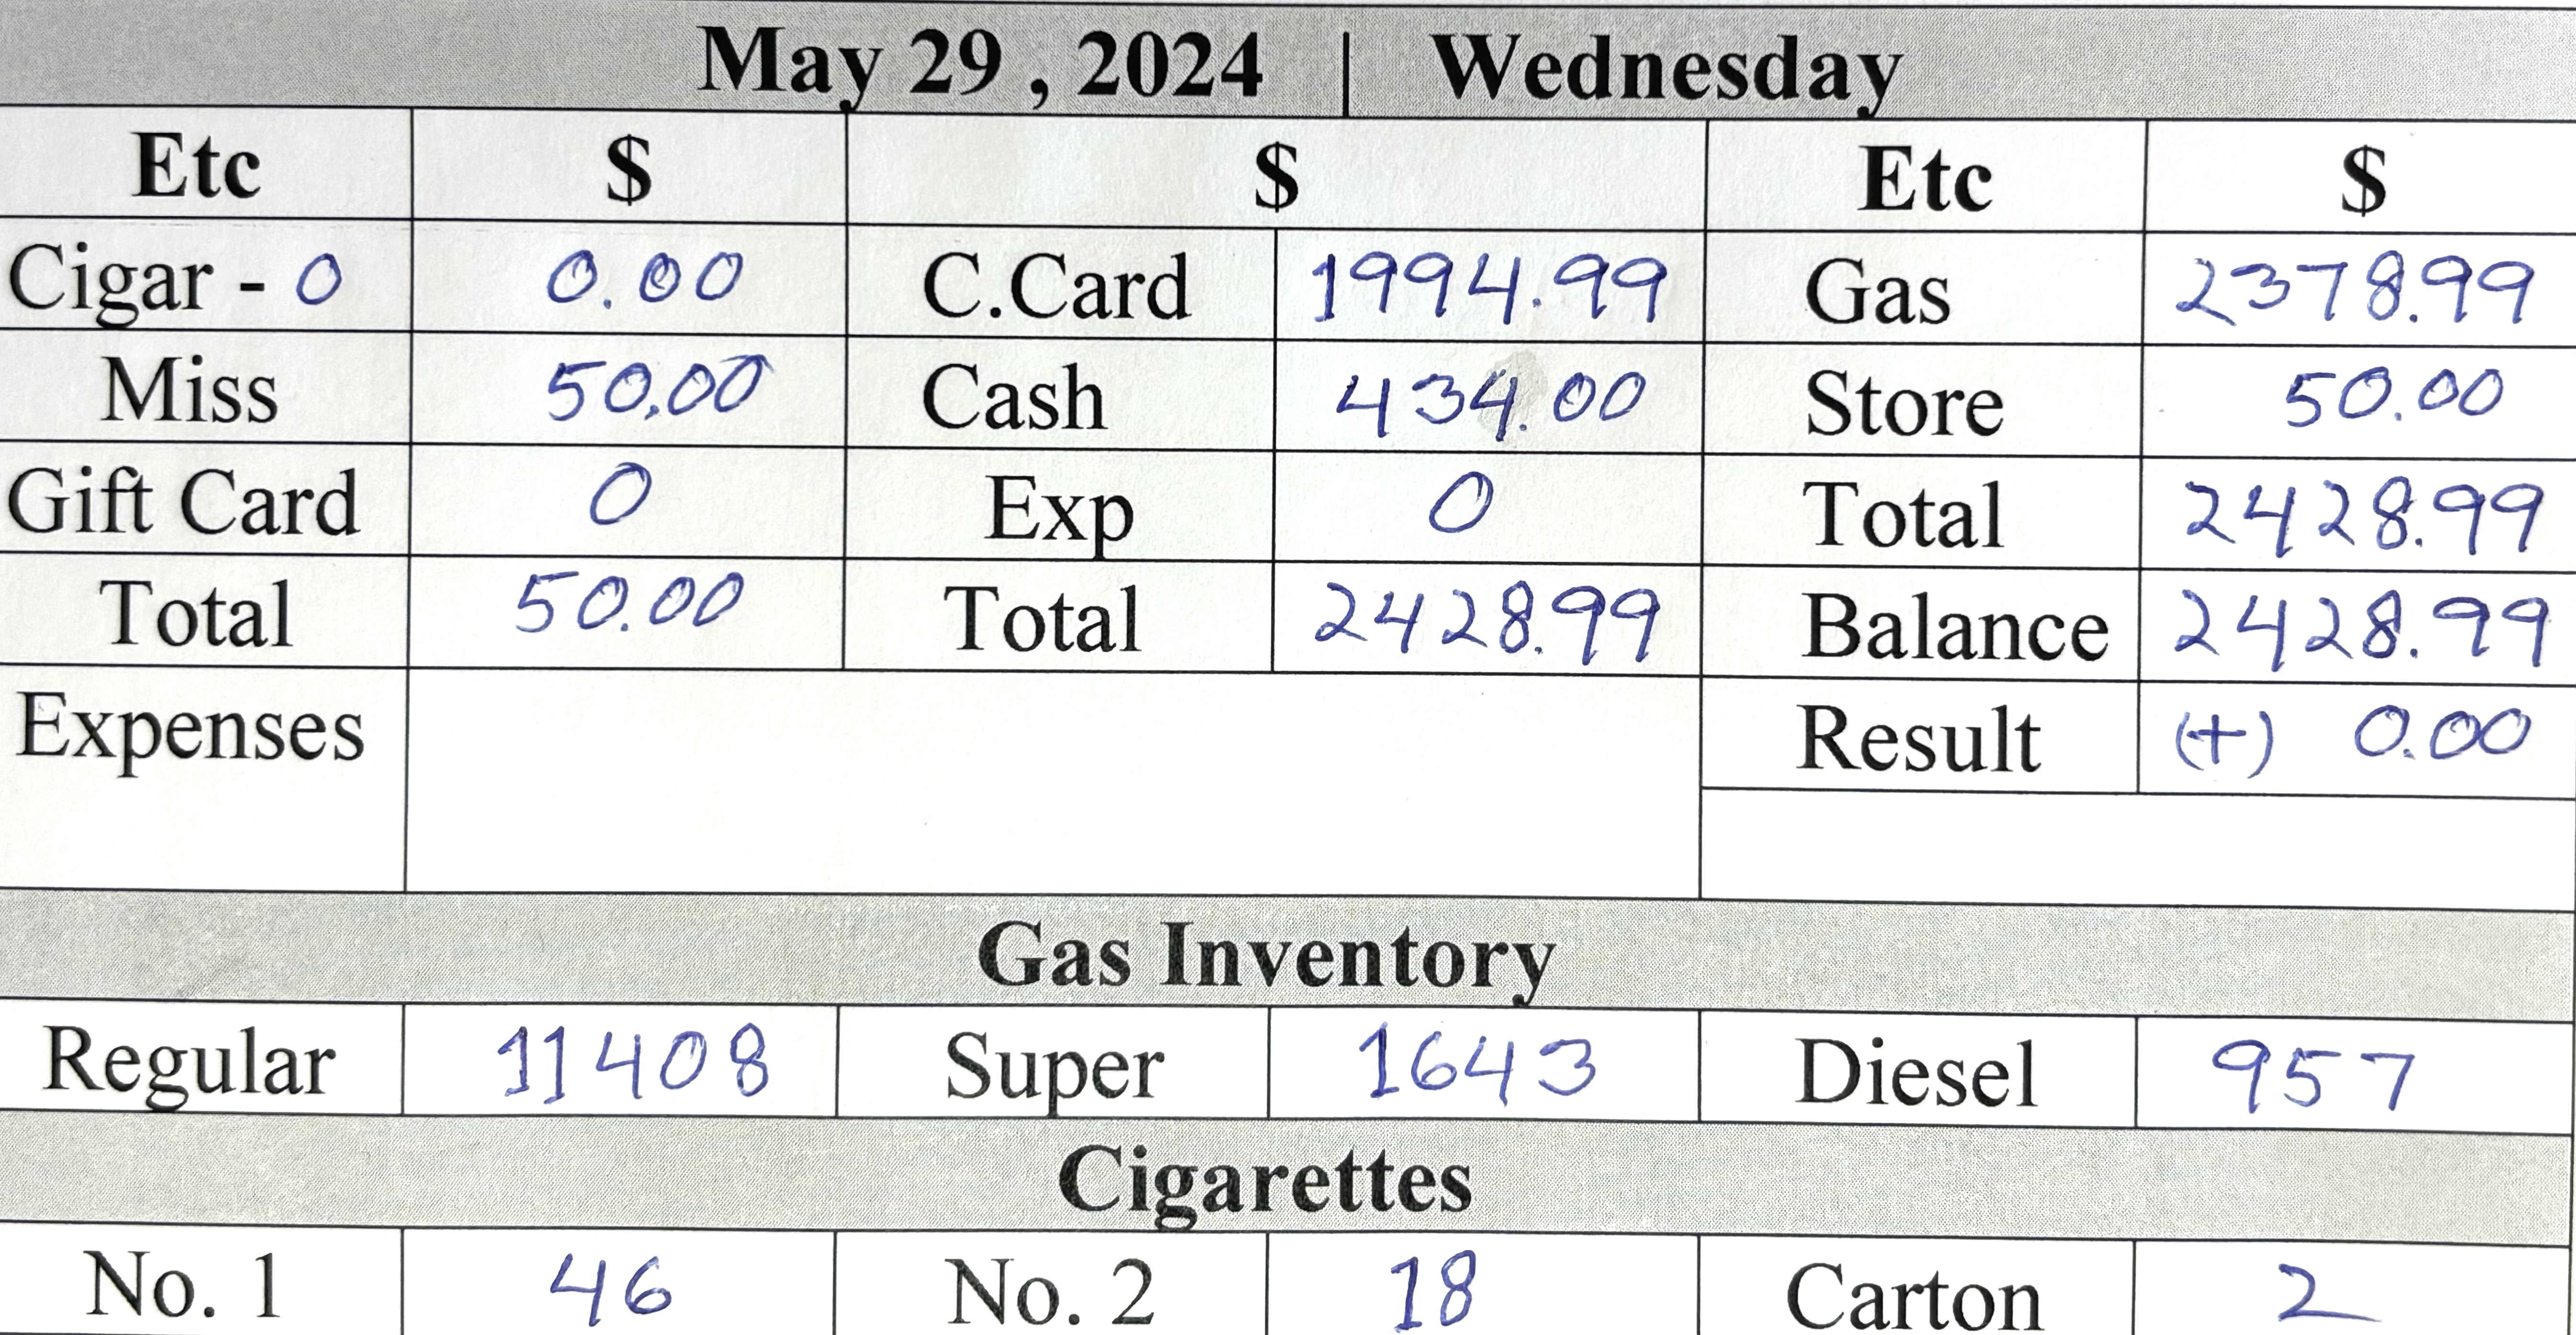 May 29 , 2024 | Wednesday
Etc $ $ Etc $
Cigar - 0 0.00 C.Card 1994.99 Gas 2378.99
Miss 50.00 Cash 434.00 Store 50.00
Gift Card 0 Exp 0 Total 2428.99
Total 50.00 Total 2428.99 Balance 2428.99
Expenses Result (+) 0.00
Gas Inventory
Regular 11408 Super 1643 Diesel 957
Cigarettes
No. 1 46 No. 2 18 Carton 2